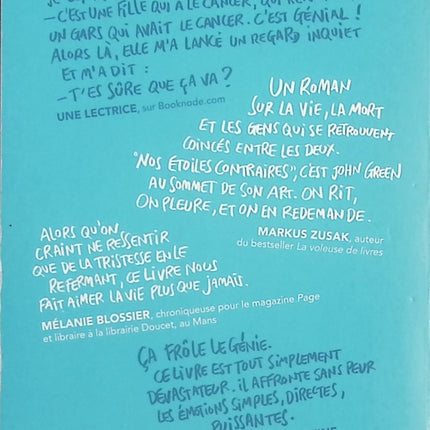 –C'EST UNE FILLE QUI A LE CANCER, QUI
UN GARS QUI AVAIT LE CANCER. C'EST GÉNIAL !
ALORS LÀ, ELLE M'A LANCÉ UN REGARD INQUIET
ET M'A DIT :
–T'ES SÛRE QUE ÇA VA ?
UNE LECTRICE, sur Booknode.com
UN ROMAN
SUR LA VIE, LA MORT
ET LES GENS QUI SE RETROUVENT
COINCÉS ENTRE LES DEUX.
"NOS ÉTOILES CONTRAIRES", C'EST JOHN GREEN
AU SOMMET DE SON ART. ON RIT,
ON PLEURE, ET ON EN REDEMANDE.
MARKUS ZUSAK, auteur
du bestseller La voleuse de livres
ALORS QU'ON
CRAINT NE RESSENTIR
QUE DE LA TRISTESSE EN LE
REFERMANT, CE LIVRE NOUS
FAIT AIMER LA VIE PLUS QUE JAMAIS.
MÉLANIE BLOSSIER, chroniqueuse pour le magazine Page
et libraire à la librairie Doucet, au Mans
ÇA FRÔLE LE GÉNIE.
CE LIVRE EST TOUT SIMPLEMENT
DÉVASTATEUR. IL AFFRONTE SANS PEUR
LES ÉMOTIONS SIMPLES, DIRECTES,
PUISSANTES.